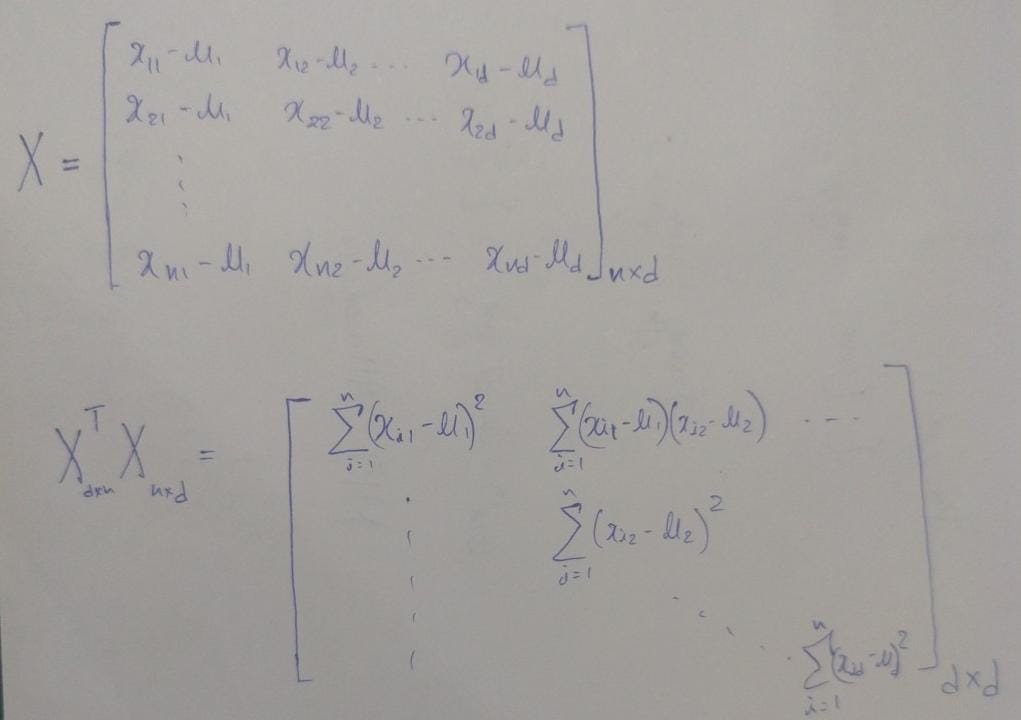 X = [ x₁₁ - μ₁ x₁₂ - μ₂ ... x₁d - μd
x₂₁ - μ₁ x₂₂ - μ₂ ... x₂d - μd
⋮
xₙ₁ - μ₁ xₙ₂ - μ₂ ... xₙd - μd ] n×d
Xᵀ d×n X n×d = [ ∑ᵢ₌₁ⁿ (xᵢ₁ - μ₁)² ∑ᵢ₌₁ⁿ (xᵢ₁ - μ₁)(xᵢ₂ - μ₂) ....
⋮ ∑ᵢ₌₁ⁿ (xᵢ₂ - μ₂)²
⋱ ∑ᵢ₌₁ⁿ (xᵢd - μd)² ] d×d